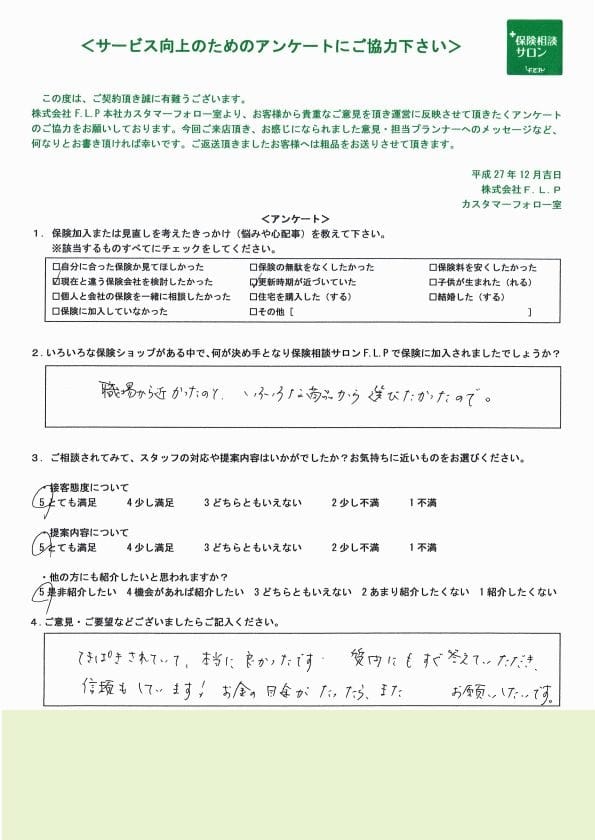 ＜サービス向上のためのアンケートにご協力下さい＞
保険相談
サロン
F.L.P
この度は、ご契約頂き誠に有難うございます。
株式会社F.L.P本社カスタマーフォロー室より、お客様から貴重なご意見を頂き運営に反映させて頂きたくアンケート
のご協力をお願いしております。今回ご来店頂き、お感じになられました意見・担当プランナーへのメッセージなど、
何なりとお書き頂ければ幸いです。ご返送頂きましたお客様へは粗品をお送りさせて頂きます。
平成27年12月吉日
株式会社F.L.P
カスタマーフォロー室
＜アンケート＞
1．保険加入または見直しを考えたきっかけ（悩みや心配事）を教えて下さい。
※該当するものすべてにチェックをしてください。
□自分に合った保険か見てほしかった □保険の無駄をなくしたかった □保険料を安くしたかった
☑現在と違う保険会社を検討したかった ☑更新時期が近づいていた □子供が生まれた（れる）
□個人と会社の保険を一緒に相談したかった □住宅を購入した（する） □結婚した（する）
□保険に加入していなかった □その他［ ］
2．いろいろな保険ショップがある中で、何が決め手となり保険相談サロンF.L.Pで保険に加入されましたでしょうか？
職場から近かったのと、いろいろな商品から選びたかったので。
3．ご相談されてみて、スタッフの対応や提案内容はいかがでしたか？お気持ちに近いものをお選びください。
・接客態度について
5とても満足 4少し満足 3どちらともいえない 2少し不満 1不満
・提案内容について
5とても満足 4少し満足 3どちらともいえない 2少し不満 1不満
・他の方にも紹介したいと思われますか？
5是非紹介したい 4機会があれば紹介したい 3どちらともいえない 2あまり紹介したくない 1紹介したくない
4．ご意見・ご要望などございましたらご記入ください。
てきぱきされていて、本当に良かったです。質問にもすぐ答えていただき、
信頼もしています！お金の たったら、また お願いしたいです。